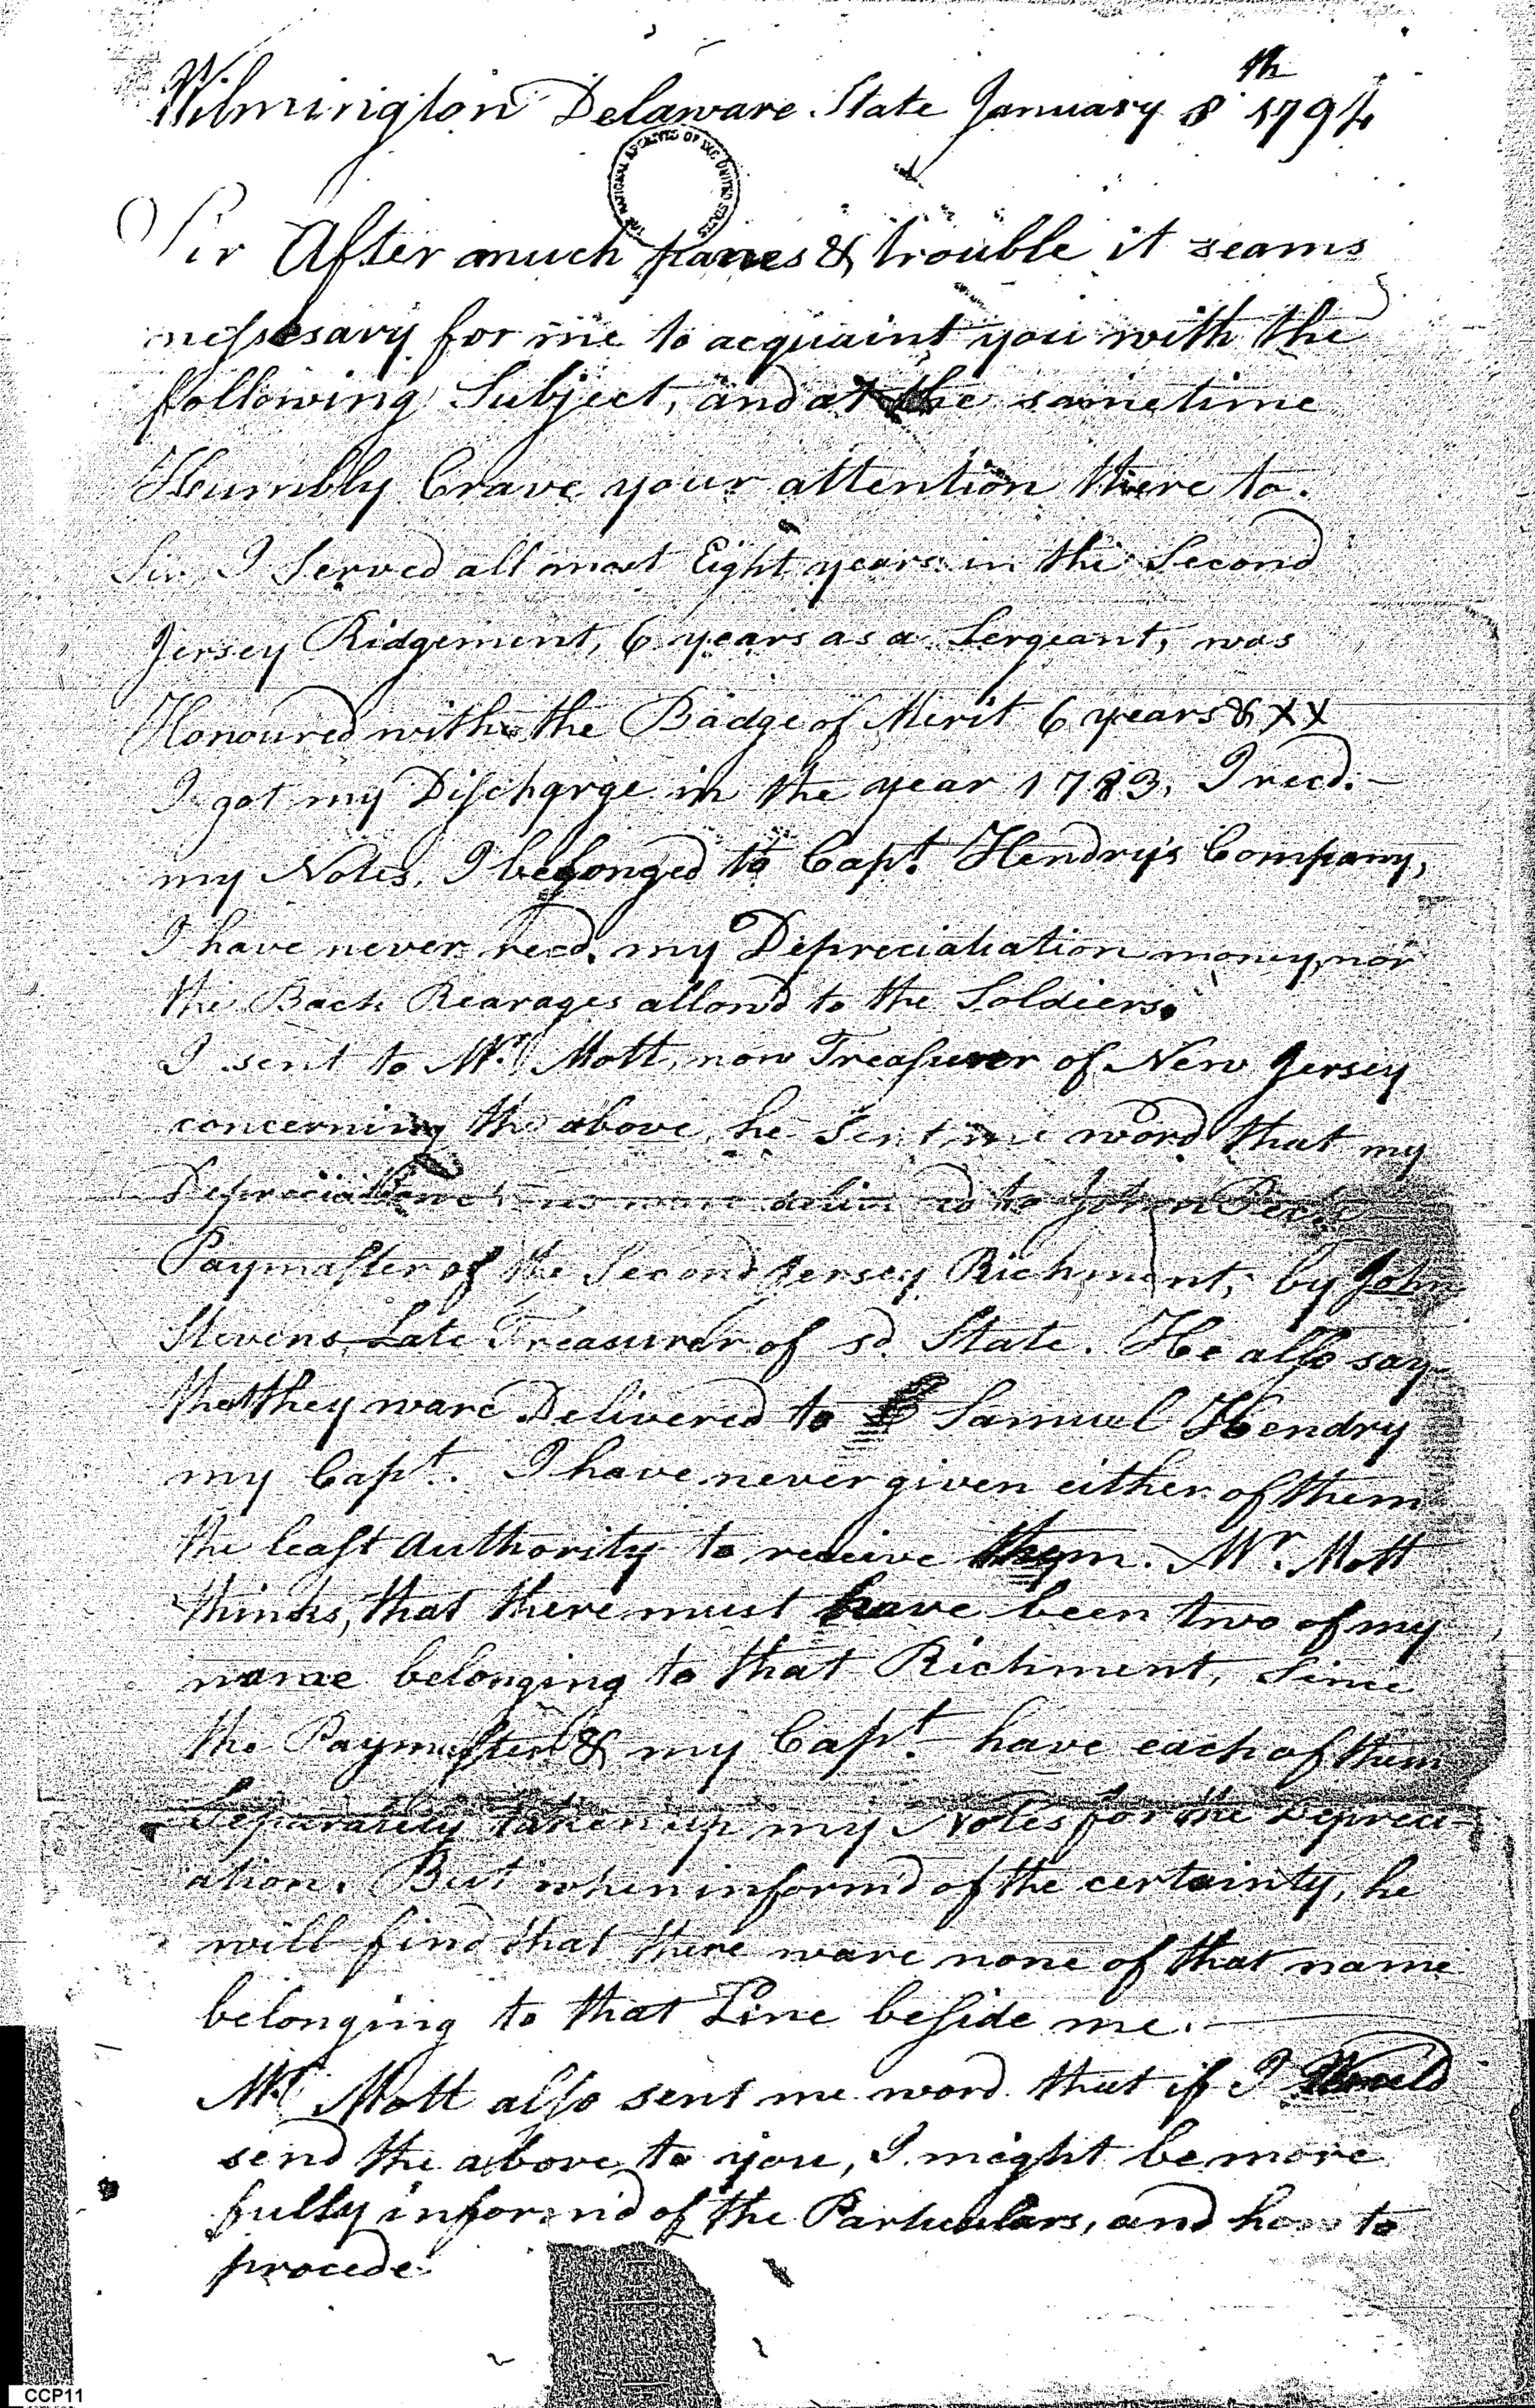 Wilmington Delaware State January 8th 1794
THE NATIONAL ARCHIVES OF THE UNITED STATES
Sir After much panes & trouble it seams
nessessary for me to acquaint you with the
following Subject, and at the sametime
Humbly Crave your attention there to.
Sir I Served all most Eight years in the Second
Jersey Ridgement, 6 years as a Sergeant, was
Honoured with the Badge of Merit 6 years & XX
I got my Discharge in the year 1783, I recd.
my Notes, I belonged to Capt. Hendry's Company,
I have never recd. my Depreciatiation money, nor
the Back Rearages allow'd to the Soldiers.
I sent to Mr. Mott, now Treasurer of New Jersey
concerning the above, he Sent me word that my
Depreciation to John
Paymaster of the Second Jersey Richment, by John
Stevens, Late Treasurer of sd. State. He also say
that they ware Delivered to Samuel Hendry
my Capt. I have never given either of them
the least Authority to receive them. Mr. Mott
thinks, that there must have been two of my
name belonging to that Richment, Since
the Paymaster & my Capt. have each of them
Separately taken up my Notes for the Depreci-
ation. But when inform'd of the certainty, he
will find that there ware none of that name
belonging to that Line beside me.
Mr. Mott also sent me word that if I Would
send the above to you, I might be more
fully inform'd of the Particulars, and how to
procede
CCP11